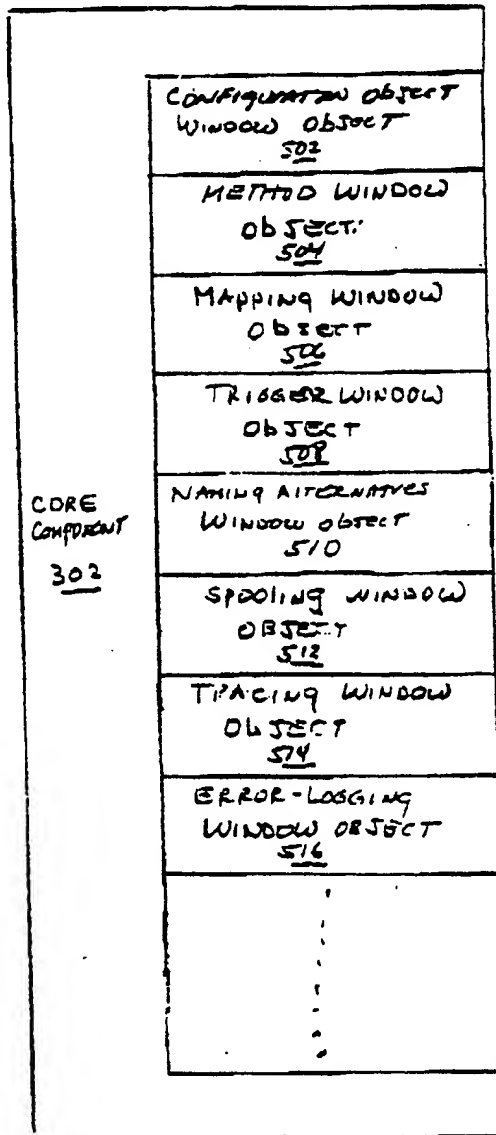 CONFIGURATION ObJECT
WINDOW ObJECT
502
METHOD WINDOW
ObJECT
504
MAPPING WINDOW
ObJECT
506
TRIGGER WINDOW
ObJECT
508
NAMING AlTERNATIVES
WINDOW ObJECT
510
CORE
COMPONENT
302
SPOOLING WINDOW
OBJECT
512
TRACING WINDOW
ObJECT
514
ERROR-LOGGING
WINDOW OBJECT
516